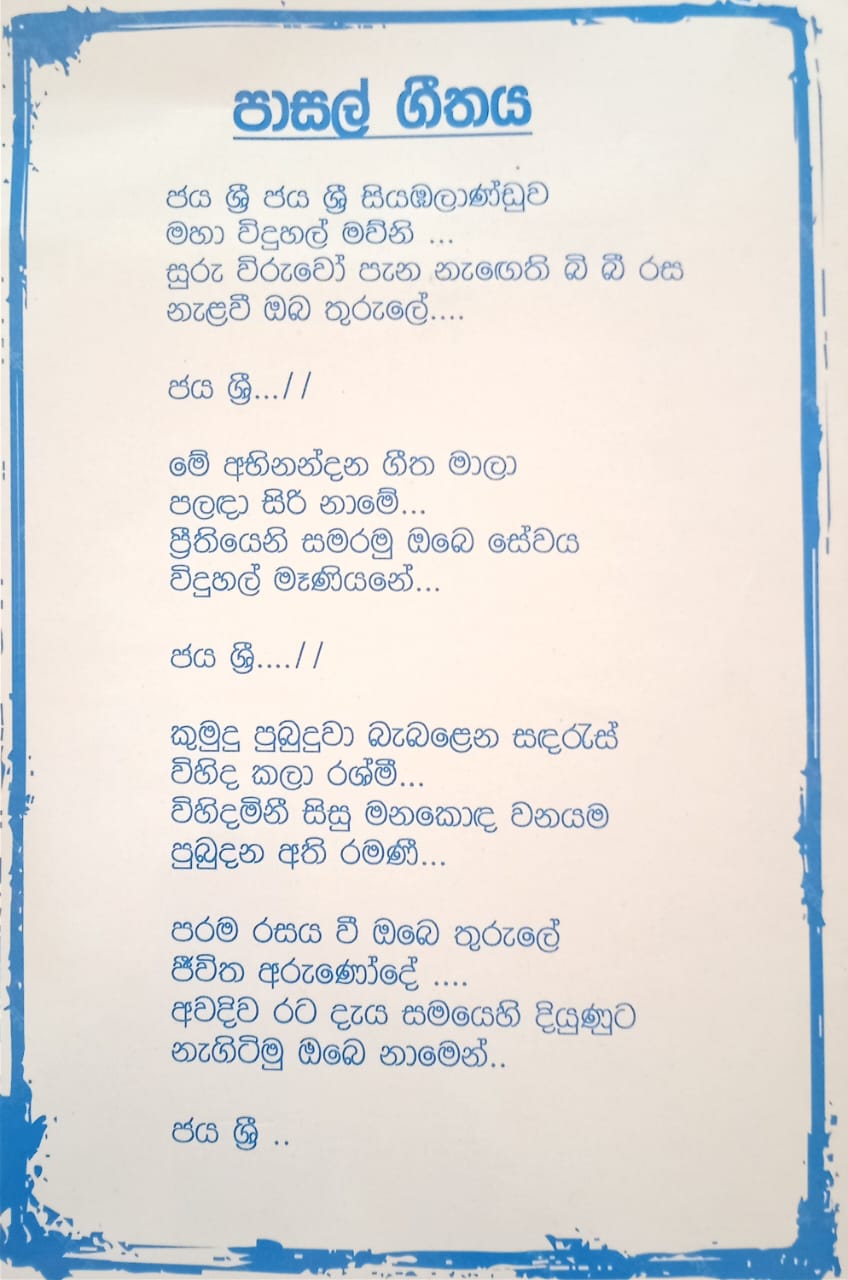 පාසල් ගීතය
ජය ශ්‍රී ජය ශ්‍රී සියඹලාණ්ඩුව
මහා විදුහල් මව්නි ...
සුරු විරුවෝ පැන නැඟෙති බි බී රස
නැළවී ඔබ තුරුලේ....
ජය ශ්‍රී...//
මේ අභිනන්දන ගීත මාලා
පලඳා සිරි නාමේ...
ප්‍රීතියෙනි සමරමු ඔබෙ සේවය
විදුහල් මෑණියනේ...
ජය ශ්‍රී....//
කුමුදු පුබුදුවා බැබළෙන සඳරැස්
විහිද කලා රශ්මී...
විහිදමිනී සිසු මනකොඳ වනයම
පුබුදන අති රමණී...
පරම රසය වී ඔබෙ තුරුලේ
ජීවිත අරුණෝදේ ....
අවදිව රට දැය සමයෙහි දියුණුට
නැගිටිමු ඔබෙ නාමෙන්..
ජය ශ්‍රී ..